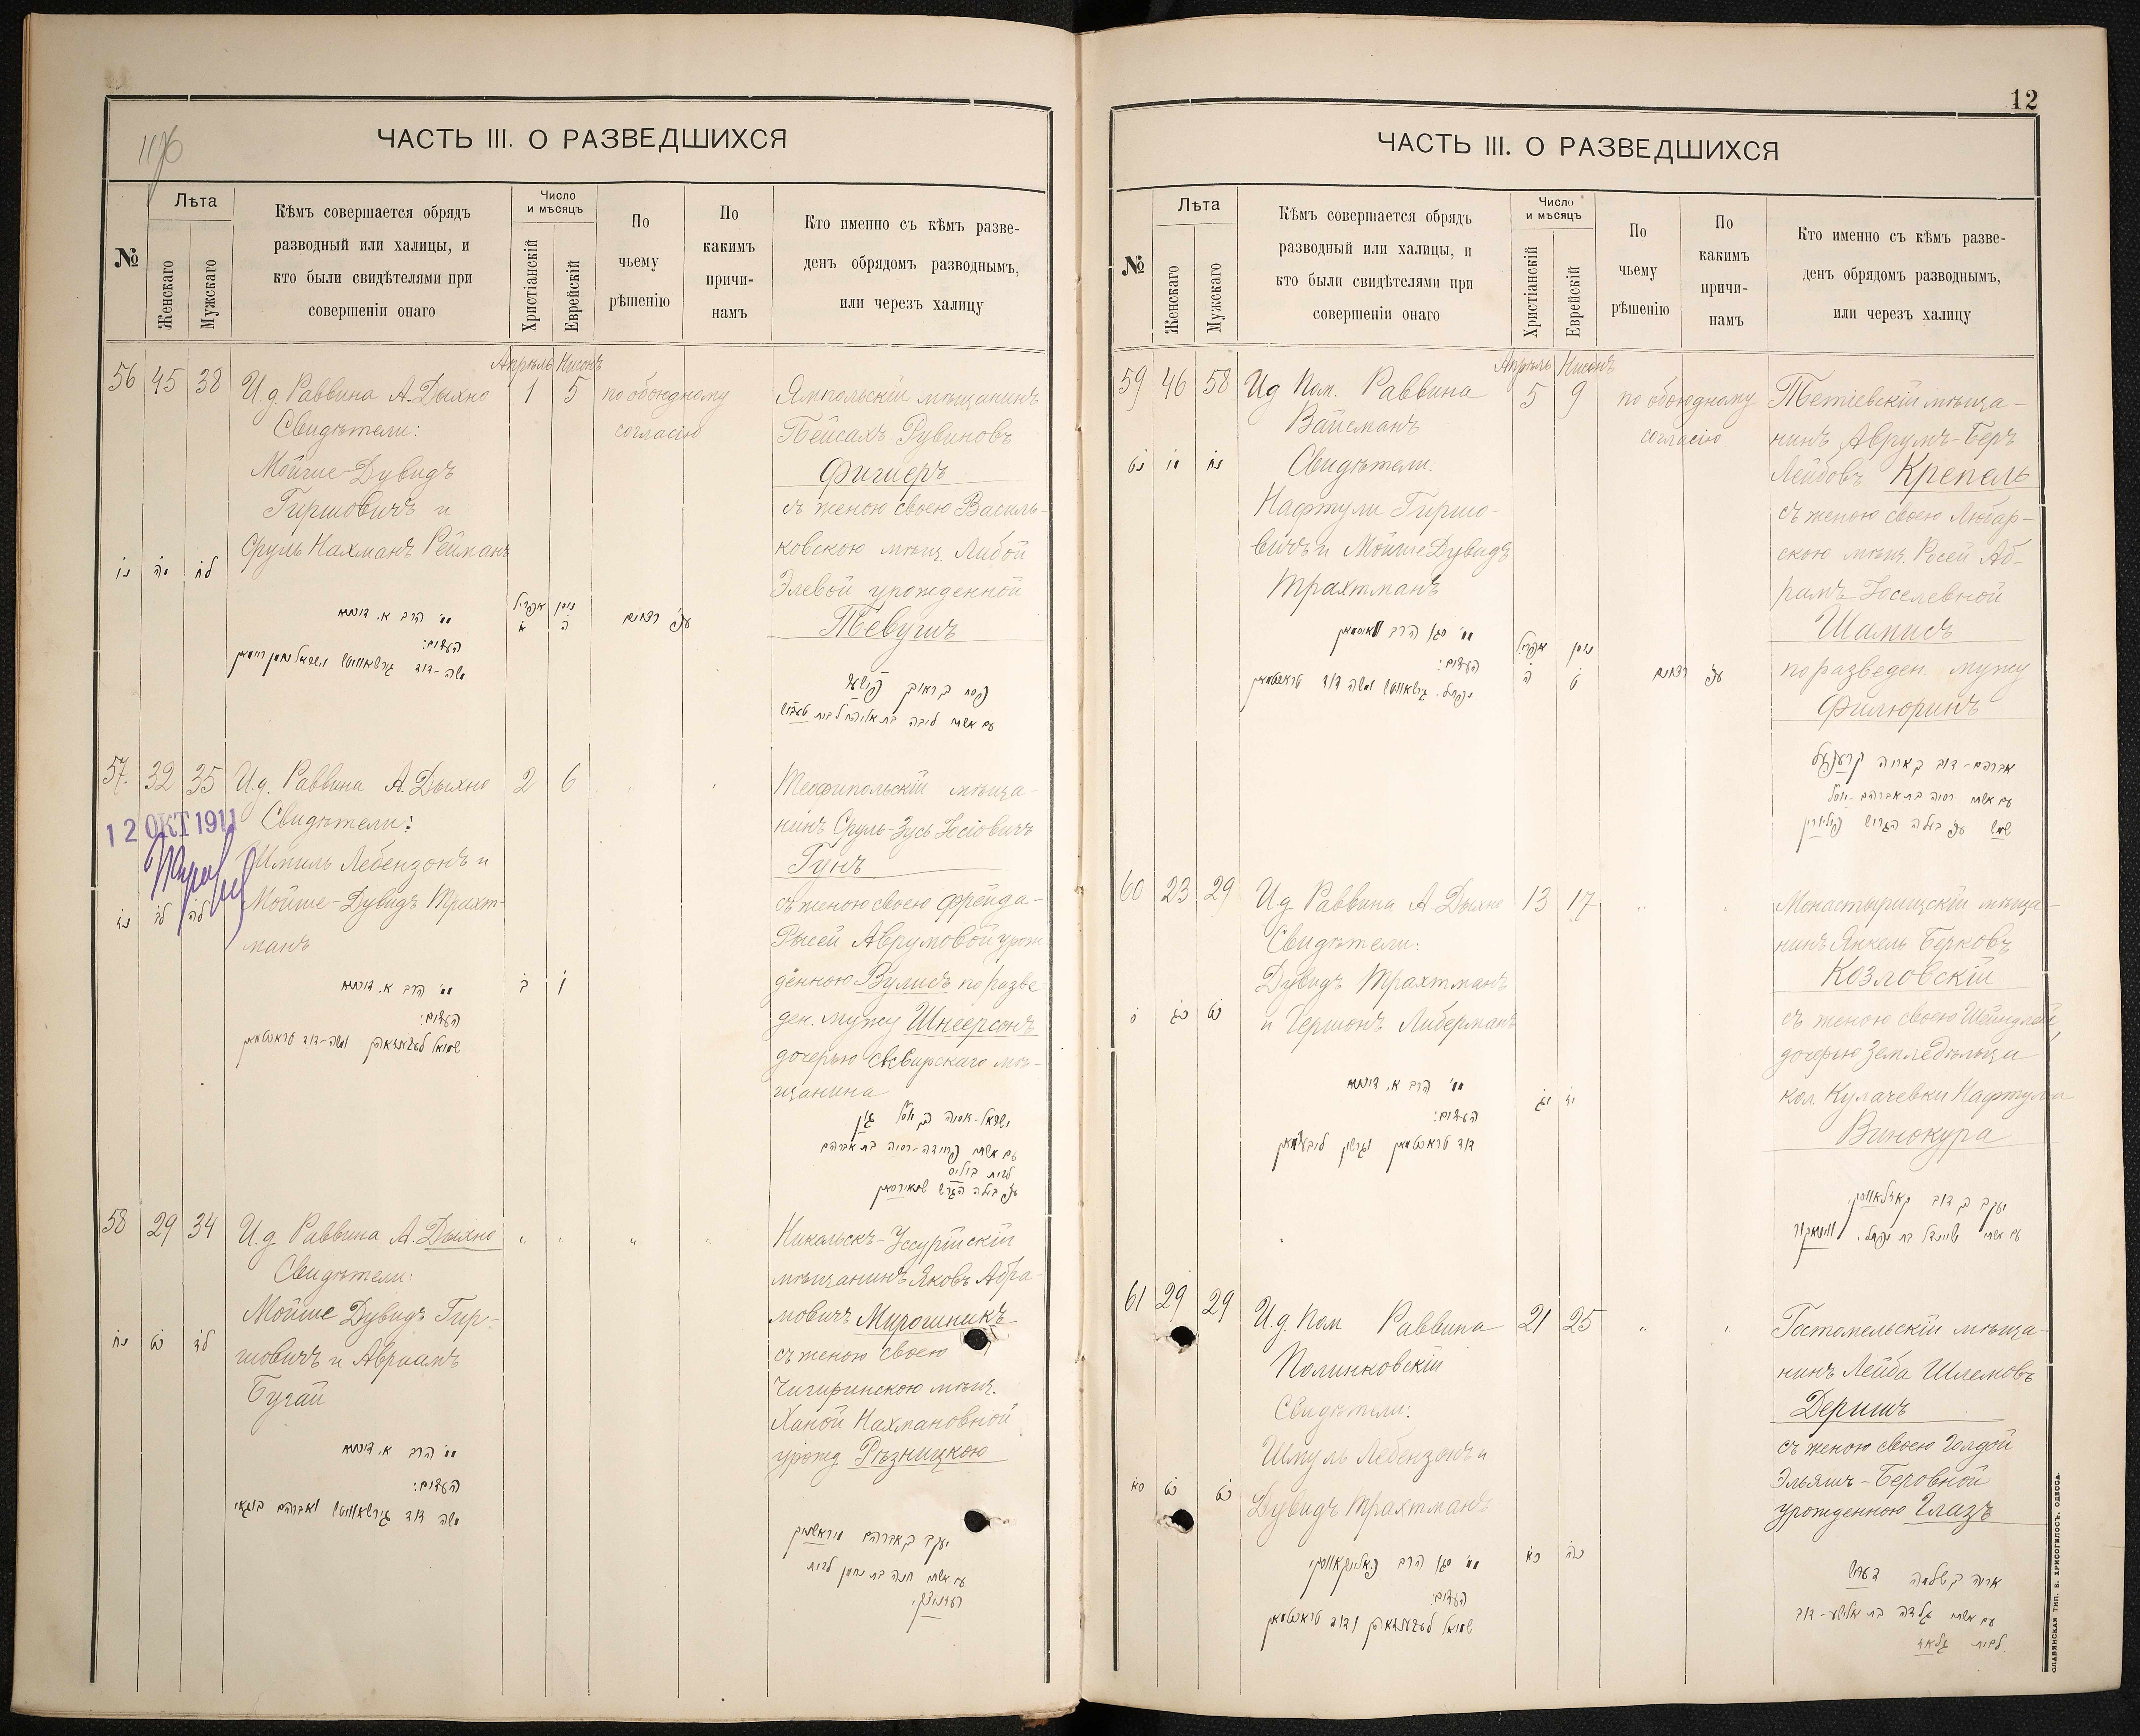 ЧАСТЬ III. О РАЗВЕДШИХСЯ
№
Лѣта
Женскаго
Мужскаго
Кѣмъ совершается обрядъ
разводный или халицы, и
кто были свидѣтелями при
совершеніи онаго
Число
и мѣсяцъ
Христіанскій
Еврейскій
По
чьему
рѣшенію
По
какимъ
причи-
намъ
Кто именно съ кѣмъ разве-
денъ обрядомъ разводнымъ,
или черезъ халицу
Апрѣль Нисонъ
56 45 38
И.д. Раввина А. Дыхно
Свидѣтели:
Мойше-Дувидъ
Гиршовичъ и
Сруль Нахманъ Рейманъ
1 5
по обоюдному
согласію
Ямпольскій мѣщанинъ
Пейсахъ Рувиновъ
Фигнеръ
съ женою своею Василь-
ковскою мѣщ. Либой
Элевой урожденной
Тевугъ
נו מה לח
הרב א. דיחנא
העדים:
משה-דוד גירשאוויטש וישראל נחמן ריימאן
אפריל ניסן
א ה
57. 32 35
И.д. Раввина А. Дыхно
Свидѣтели:
Шмиль Лебензонъ и
Мойше-Дувидъ Трахт-
манъ
2 6
Теофипольскій мѣща-
нинъ Сруль-Зусь Іосіовичъ
Гунъ
съ женою своею Фрейда-
Рысей Аврумовой урож-
денною Вулисъ по разве-
ден. мужу Шнеерсонъ
дочерью Сквирскаго мѣ-
щанина
12 ОКТ 1911
נז לב לה
הרב א. דיחנא
העדים:
ב ו
58 29 34
И.д. Раввина А. Дыхно
Свидѣтели:
Мойше Дувидъ Гир-
шовичъ и Авраамъ
Бугай
Никольскъ-Уссурійскій
мѣщанинъ Яковъ Абра-
мовичъ Мирошникъ
съ женою своею
Чигиринскою мѣщ.
Ханой Нахмановной
урожд. Рѣзницкою
נח כט לד
הרב א. דיחנא
העדים:
משה דוד גירשאוויטש ואברהם בוגאי
12
ЧАСТЬ III. О РАЗВЕДШИХСЯ
№
Лѣта
Женскаго
Мужскаго
Кѣмъ совершается обрядъ
разводный или халицы, и
кто были свидѣтелями при
совершеніи онаго
Число
и мѣсяцъ
Христіанскій
Еврейскій
По
чьему
рѣшенію
По
какимъ
причи-
намъ
Кто именно съ кѣмъ разве-
денъ обрядомъ разводнымъ,
или черезъ халицу
Апрѣль Нисонъ
59 46 58
Ид Пом. Раввина
Вайсманъ
Свидѣтели:
Нафтули Гиршо-
вичъ и Мойше Дувидъ
Трахтманъ
5 9
по обоюдному
согласію
Тетіевскій мѣща-
нинъ Аврумъ-Беръ
Лейбовъ Крепель
съ женою своею Любар-
скою мѣщ. Росей Аб-
рамъ-Іоселевной
Шамисъ
по разведен. мужу
Филюринъ
נט מו נח
העדים:
אפריל ניסן
ה ט
60 23 29
И.д. Раввина А. Дыхно
Свидѣтели:
Дувидъ Трахтманъ
и Гершонъ Либерманъ
13 17
Монастырищскій мѣща-
нинъ Янкель Берковъ
Козловскій
съ женою своею Шейндлей,
дочерью Земледѣльца
кол. Кулачевки Нафтула
Винокура
ס כג כט
הרב א. דיחנא
העדים:
יג יז
61 29 29
И.д. Пом Раввина
Полинковскій
Свидѣтели:
Шмуль Лебензонъ и
Дувидъ Трахтманъ
21 25
Гостомельскій мѣща-
нинъ Лейба Шлемовъ
Деришъ
съ женою своею Голдой
Эльяшъ-Беровной
урожденною Глазъ
סא כט כט
העדים:
כא כה
СЛАВЯНСКАЯ ТИП. Е. ХРИСОГЕЛОСЪ, ОДЕССА.